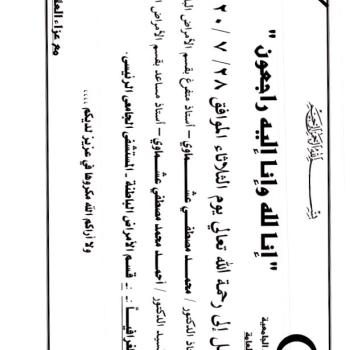 الجامعية
العامة
بسم الله الرحمن الرحيم
"إنا لله وإنا إليه راجعون"
إلى رحمة الله تعالى يوم الثلاثاء الموافق ٢٨ / ٧ / ٢٠
الدكتور / محمد مصطفى عشماوي – أستاذ متفرغ بقسم الأمراض
الدكتور / أحمد محمد مصطفي عشماوي – أستاذ مساعد بقسم الأمراض
قسم الأمراض الباطنة - المستشفى الجامعى الرئيسى.
ولا أراكم الله مكروها في عزيز لديكم ....
مع عزاء